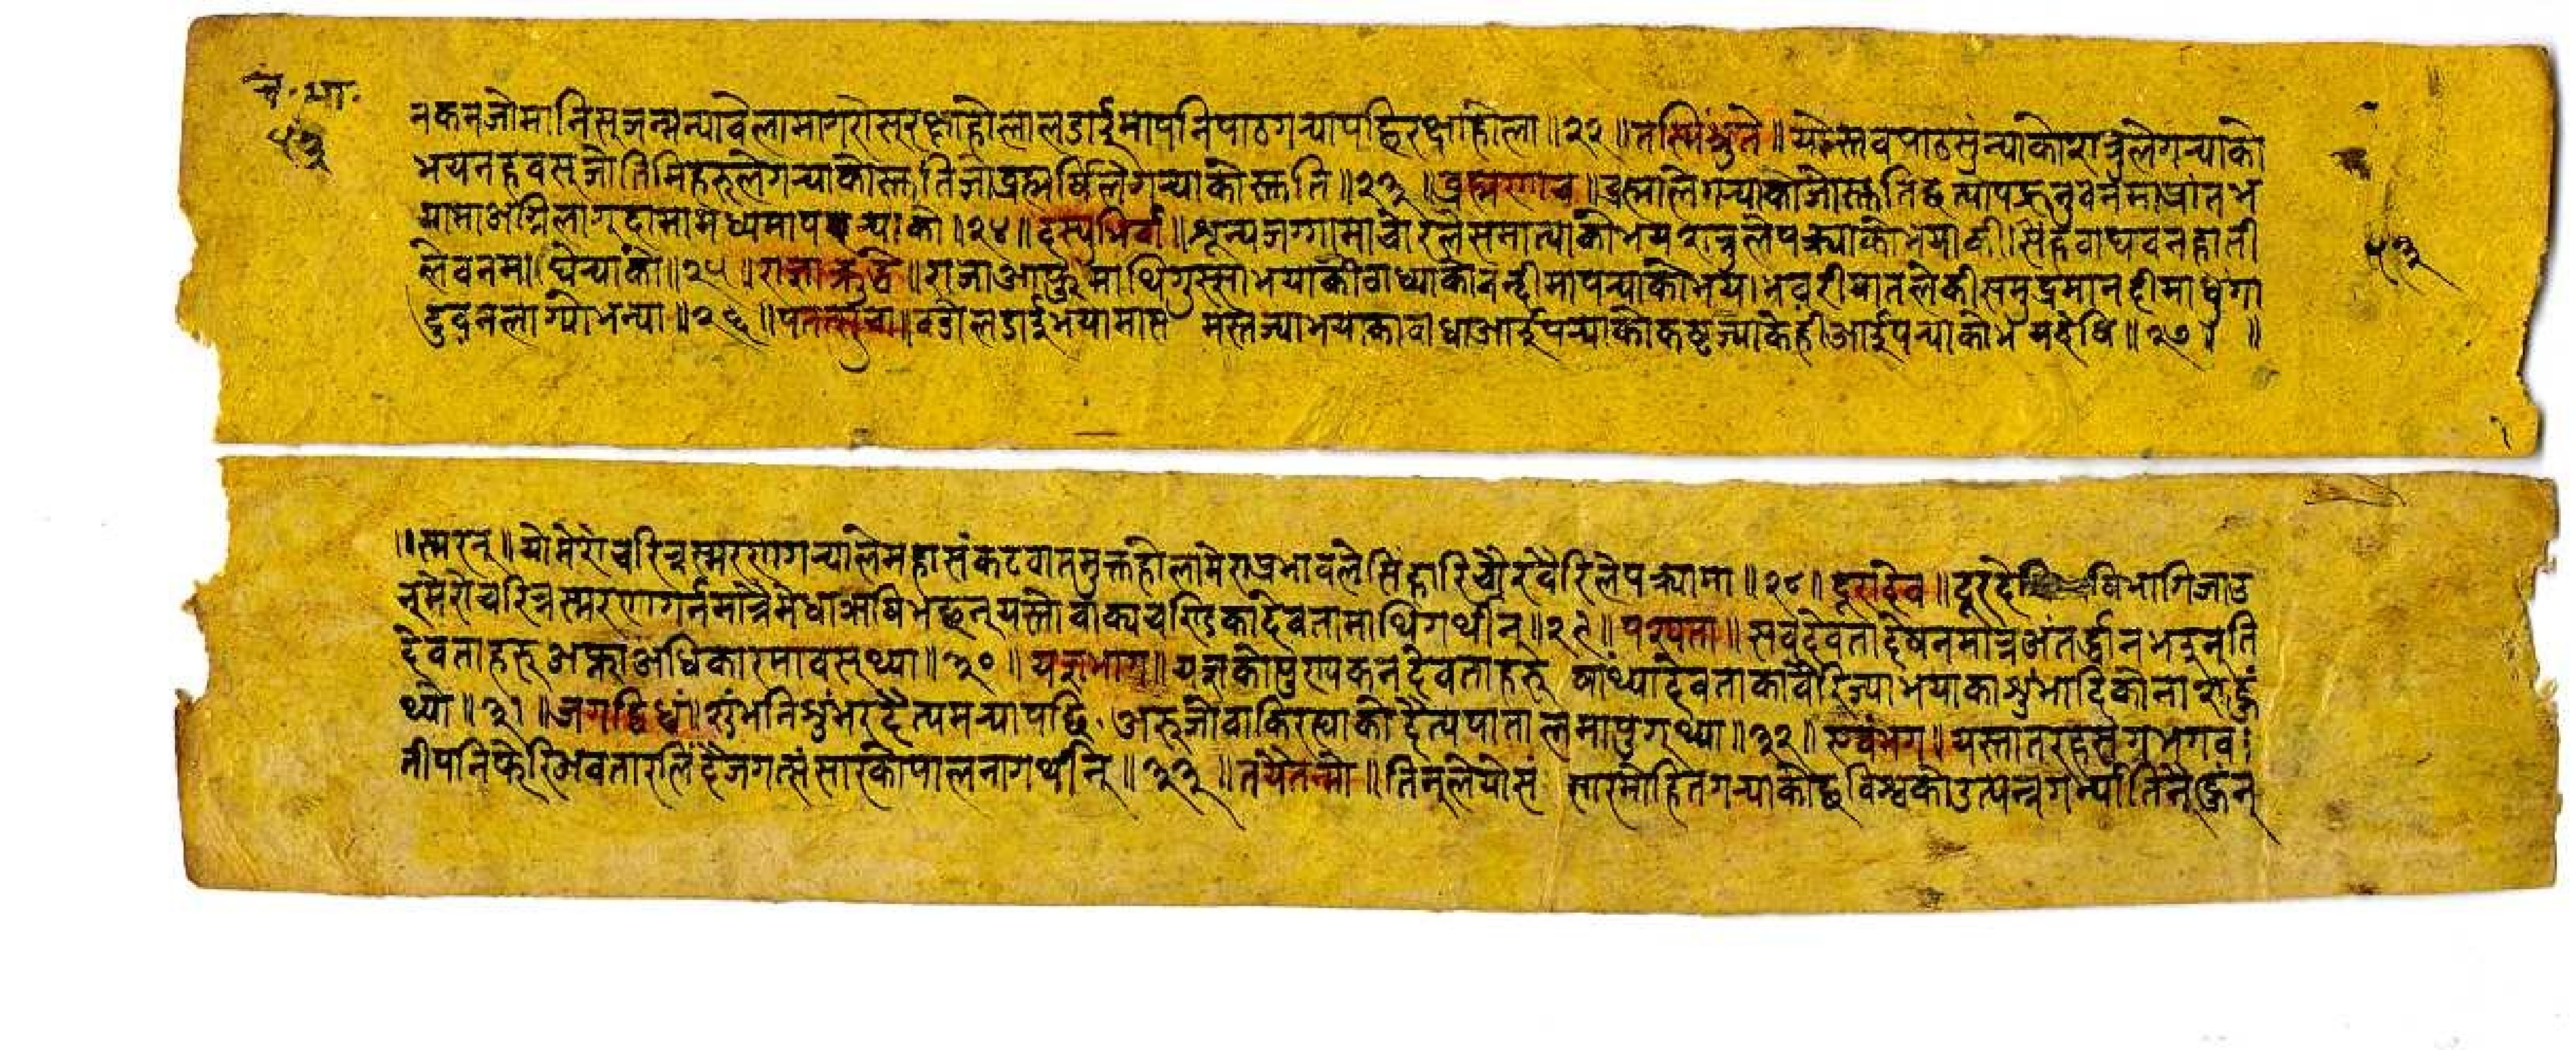 च. भा.
५३
नकन जो मानिस् जन्मन्या वेलामा गरोस रक्षा होला लडाईमा पनि पाठ गर्‍या पछि रक्षा होला ॥ २२ ॥ तस्मिंश्रुते ॥ यो स्तव पाठ सुन्याको शत्रुले गर्‍याको
भय नहवस् जो तिमिहरूले गर्‍याको स्तुति जो ब्रह्मर्षिले गर्‍याको स्तुति ॥ २३ ॥ ब्रह्मणाच ॥ ब्रह्माले गर्‍याको जो स्तुति छ त्यो पह्रनु वनमा प्रांत भ
यामा अग्नि लाग्दामा मध्यमा पर्‍याको ॥ २४ ॥ दस्युभिर्वा ॥ शून्य जग्गामा चोरले समात्याको भय शत्रुले पक्र्याको भयाकी । सिंह वाघ वनहाती
ले वनमा घेर्‍याको ॥ २५ ॥ राज्ञाक्रुद्धे ॥ राजा आफु माथि गुस्सा भयाको वाध्याको वन्दीमा पर्‍याको भय । भवरी वातले की समुद्रमा नदीमा धुंगा
डुव्न लाग्यो भन्या ॥ २६ ॥ पतत्सुचा ॥ वडो लडाईं भयामा स मस्त ज्या भयाका वाधा आई पर्‍याको कष्ट ज्या केही आई पर्‍याको भ यदेषि ॥ २७ ॥ ॥
५३
॥ स्मरन् ॥ यो मेरो चरित्र स्मरण गर्‍याले महासंकट वात मुक्त होला मेरा प्रभावले सिंहादि चोर वैरिले पक्र्यामा ॥ २८ ॥ दूरादेव ॥ दूरदेषि भागि जाउ
न् मेरो चरित्र स्मरण गर्नमात्रै मेधा ऋषि भंछन् यस्तो वाक्य चण्डिका देवतामाथि गर्थीन् ॥ २९ ॥ पश्यता ॥ सव देवता देषनमात्र अंतर्द्धान भइन् ति
देवताहरू अफ्ना अधिकारमा वस्थ्या ॥ ३० ॥ यज्ञभाग ॥ यज्ञको पुरुषकन देवताहरू षांथ्या देवताका वैरि ज्या भयाका शुंभादिको नाश हुं
थ्यो ॥ ३१ ॥ जगद्विध्वं ॥ शुंभ निशुंभर दैत्य मर्‍या पछि अरू जो वाकि रह्याको दैत्य पातालमा पुग्थ्या ॥ ३२ ॥ एवंभग ॥ यस्ता तरहसंग भगव
ती पनि फेरि अवतार लिंदै जगत्संसारको पालना गर्थीन् ॥ ३३ ॥ तयैतन्मो ॥ तिन्ले यो सं सार मोहित गर्‍याको छ विश्वको उत्पन्न गर्न्या तिनै हुन्